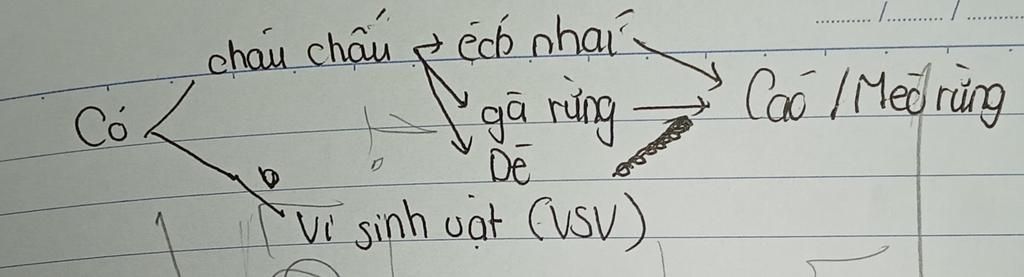 cháu chấu → ếch nhái
Cỏ
gà rừng → Cáo / Mèo rừng
Dê
Vi sinh vật (VSV)